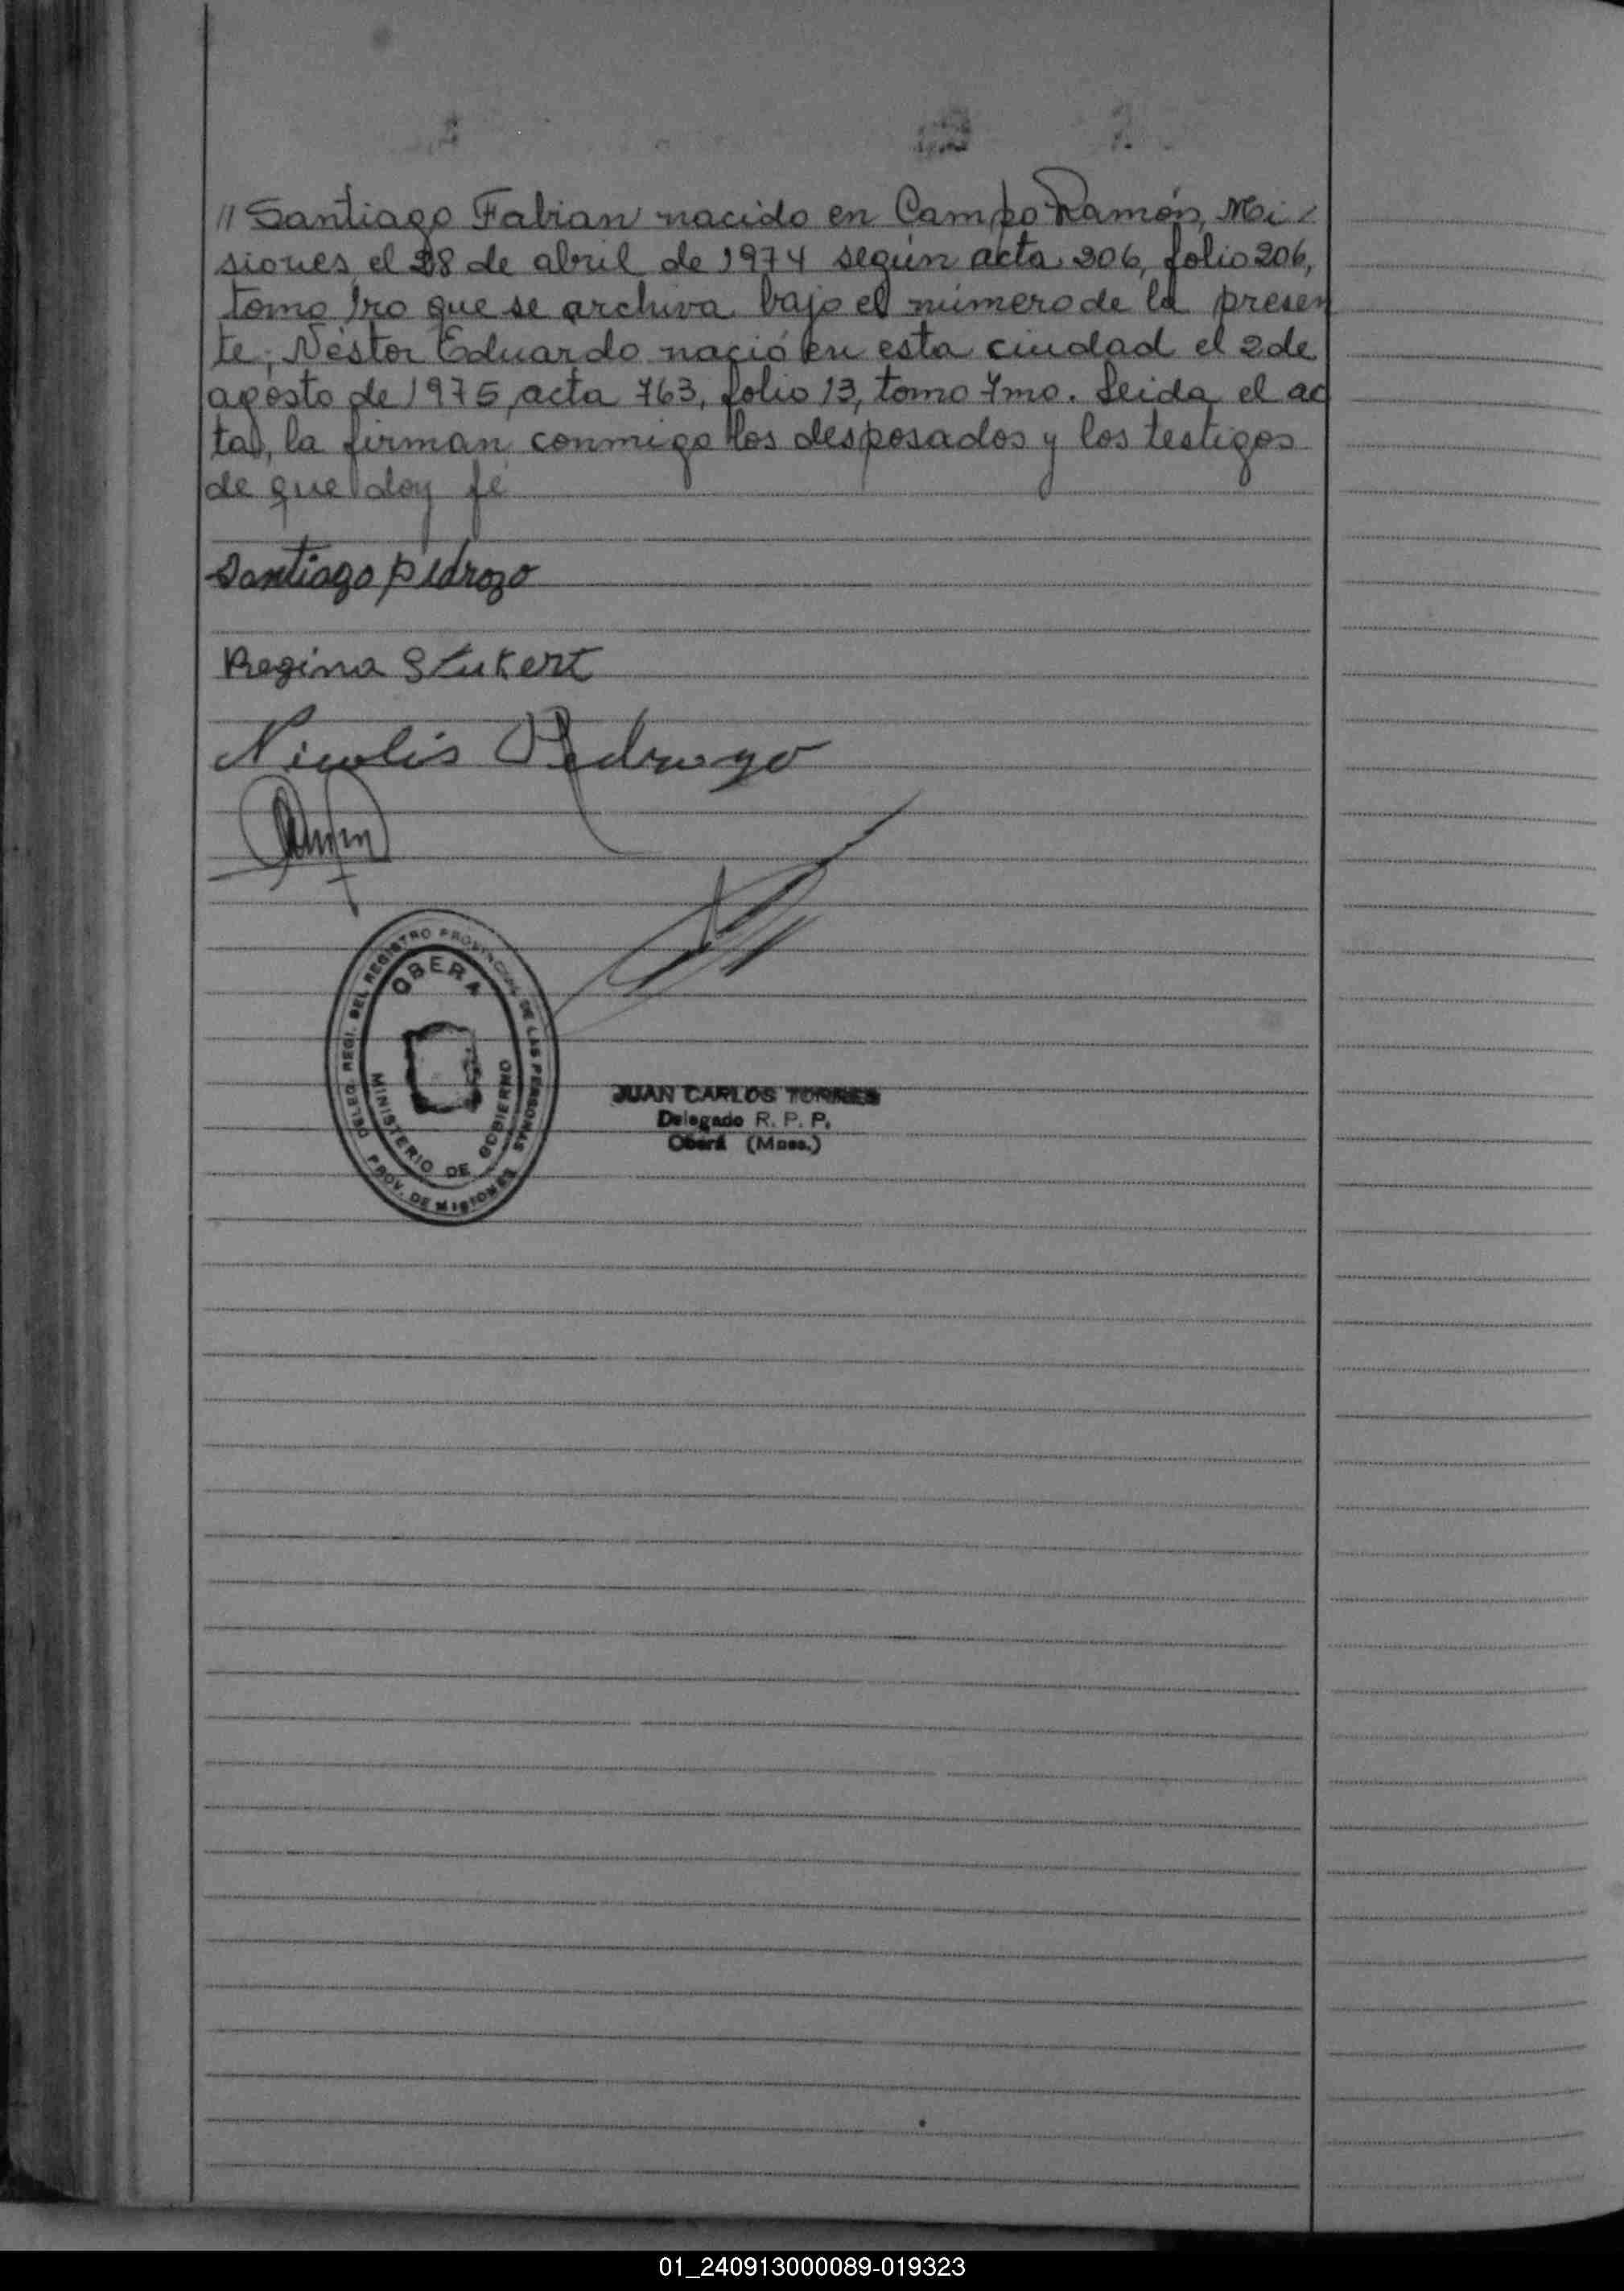 // Santiago Fabian nacido en Campo Ramón, Mi-
siones el 28 de abril de 1974 según acta 206, folio 206,
tomo 1ro que se archiva bajo el número de la presen
te; Néstor Eduardo nació en esta ciudad el 2 de
agosto de 1975, acta 763, folio 13, tomo 4mo. Leida el ac
ta, la firman conmigo los desposados y los testigos
de que doy fé
Santiago pedrozo
Regina Stukert
Nicolás Pedrozo
DELEG. REGI. DEL REGISTRO PROVINCIAL DE LAS PERSONAS
OBERA
MINISTERIO DE GOBIERNO
PROV. DE MISIONES
JUAN CARLOS TORRES
Delegado R. P. P.
Oberá (Mnes.)
01_240913000089-019323